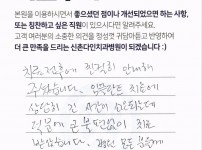 본원을 이용하시면서 좋으셨던 점이나 개선되었으면 하는 사항,
또는 칭찬하고 싶은 직원이 있으시다면 알려주세요.
고객 여러분의 소중한 의견을 정성껏 귀담아듣고 반영하여
더 큰 만족을 드리는 신촌다인치과병원이 되겠습니다 :)
치료 전후에 친절히 안내해
주셨습니다. 임플란트 치료에
상심이 컸 는데
덕분에 큰 불편없이 치료
받았습니다. 모든 분들께